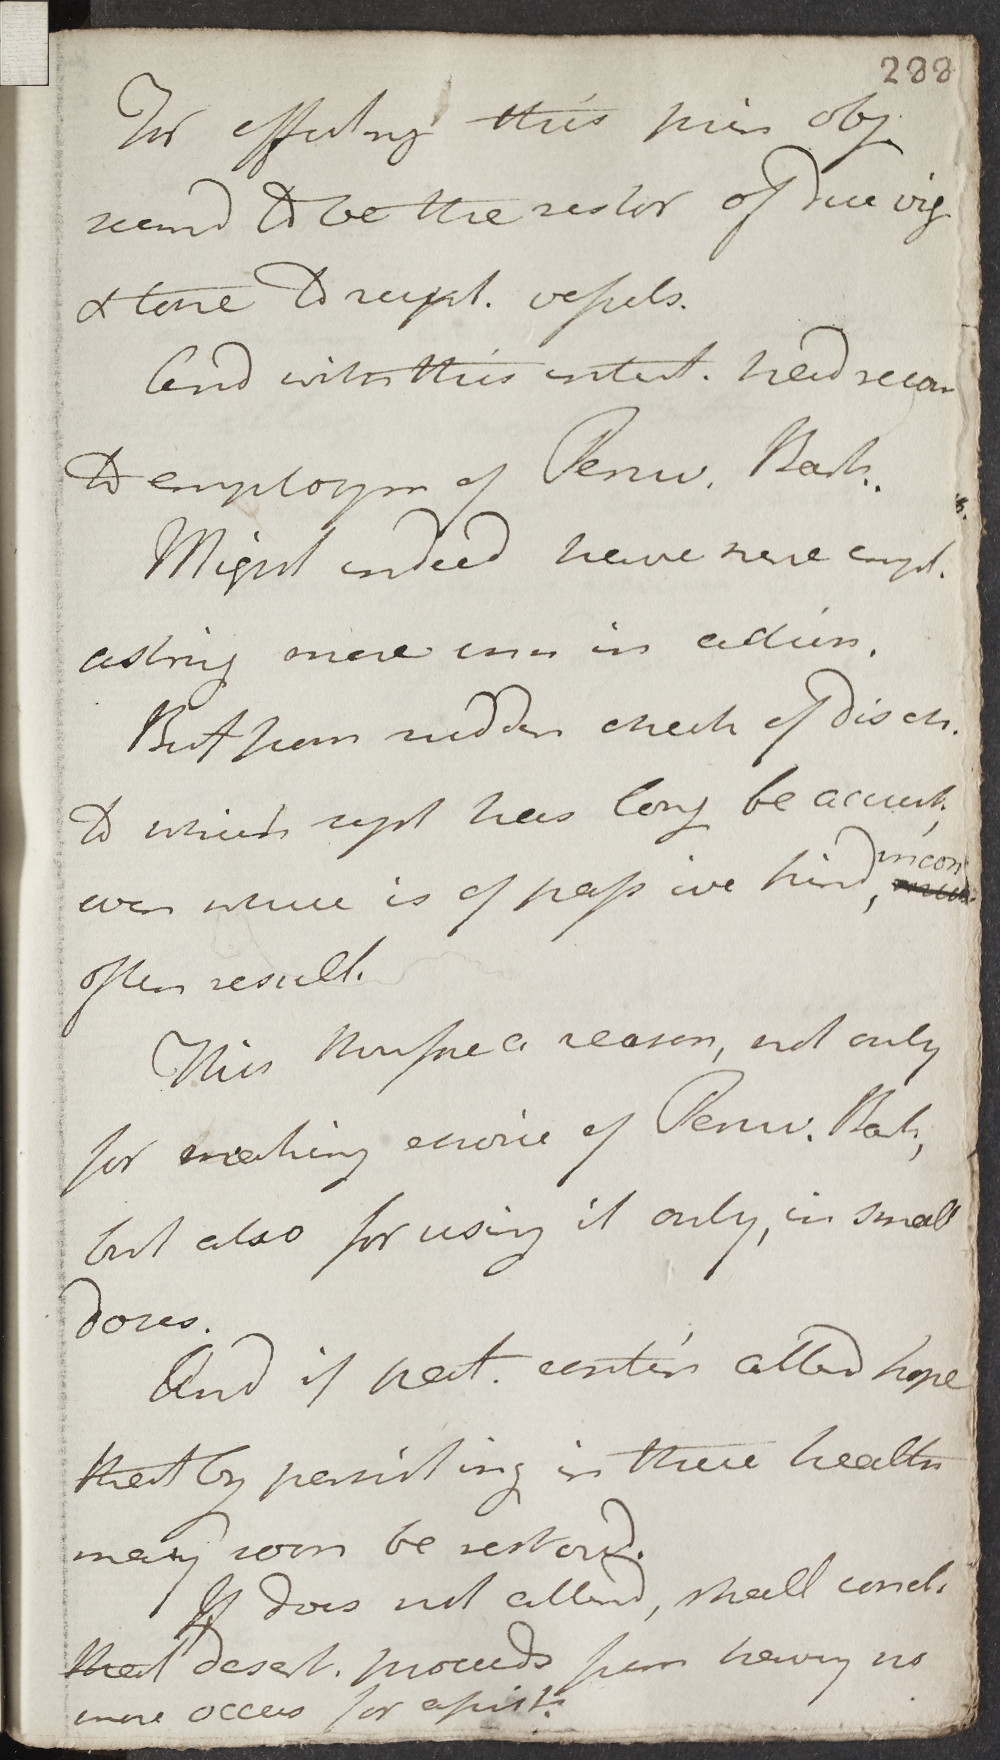 288
For effecting this prin obj.
seemd to be the restor of due vig
& tone to recept. vessels.
And with this intent. had recou
to employm of Peruv. Bark.
Might indeed have here empl.
astring more in action.
But from sudden check of disch.
to which syst has long be accust,
even where is of passive kind, incon
often result.
This therefore a reason, not only
for making choice of Peruv. Bark,
but also for using it only, in small
doses.
And if pat. contin attend hope
that by persisting in these health
may soon be restord.
If does not attend, shall concl.
that desert. proceeds from having no
more occas for assist.